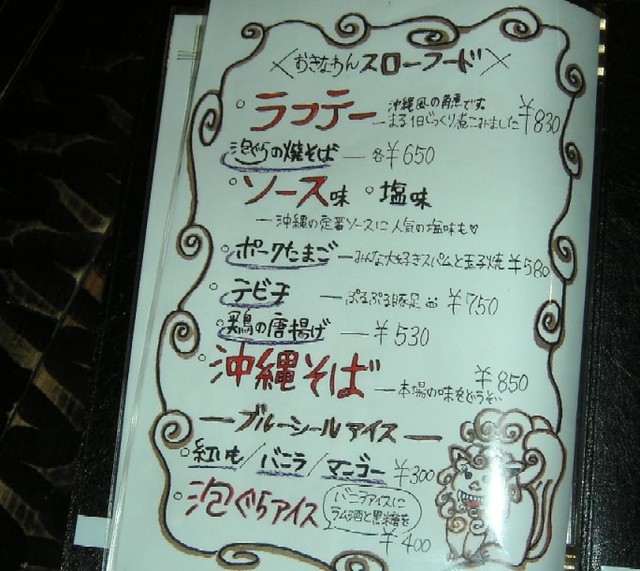 おきなわんスローフード
ラフテー
沖縄風の角煮です
まる1日じっくり煮こみました ¥830
泡ぐらの焼そば 各¥650
ソース味 塩味
沖縄の定番ソースに人気の塩味も♡
ポークたまご みんな大好きスパムと玉子焼 ¥580
テビチ ぷるぷる豚足 ¥750
鶏の唐揚げ ¥530
沖縄そば 本場の味をどうぞ ¥850
ブルーシールアイス
紅いも/バニラ/マンゴー ¥300
泡ぐらアイス
バニラアイスに
ラム酒と黒糖を
¥400